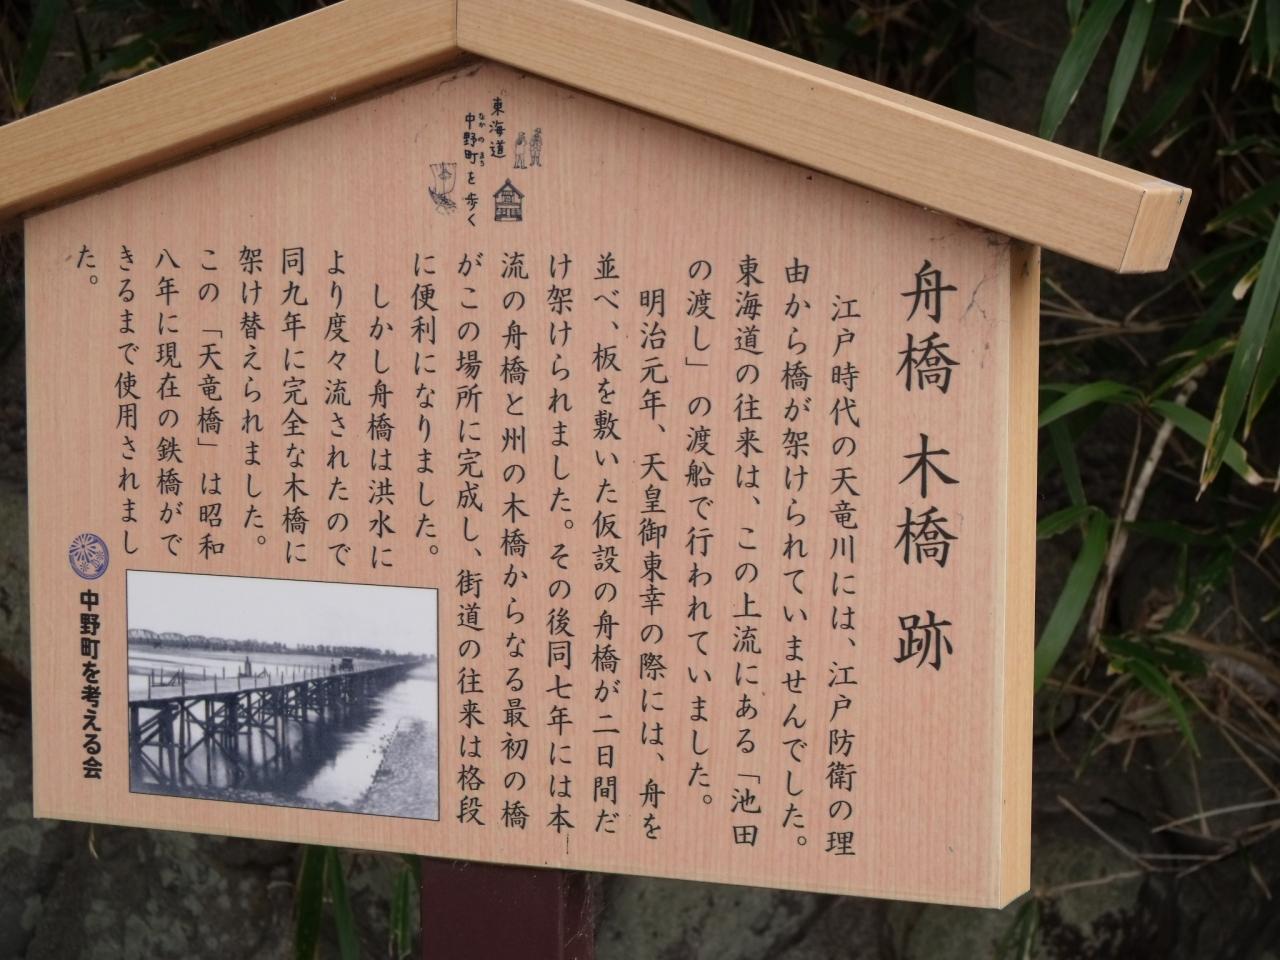 東海道
中野町を歩く
なかの まち
舟橋 木橋 跡
江戸時代の天竜川には、江戸防衛の理
由から橋が架けられていませんでした。
東海道の往来は、この上流にある「池田
の渡し」の渡船で行われていました。
明治元年、天皇御東幸の際には、舟を
並べ、板を敷いた仮設の舟橋が二日間だ
け架けられました。その後同七年には本
流の舟橋と州の木橋からなる最初の橋
がこの場所に完成し、街道の往来は格段
に便利になりました。
しかし舟橋は洪水に
より度々流されたので
同九年に完全な木橋に
架け替えられました。
この「天竜橋」は昭和
八年に現在の鉄橋がで
きるまで使用されまし
た。
中野町を考える会